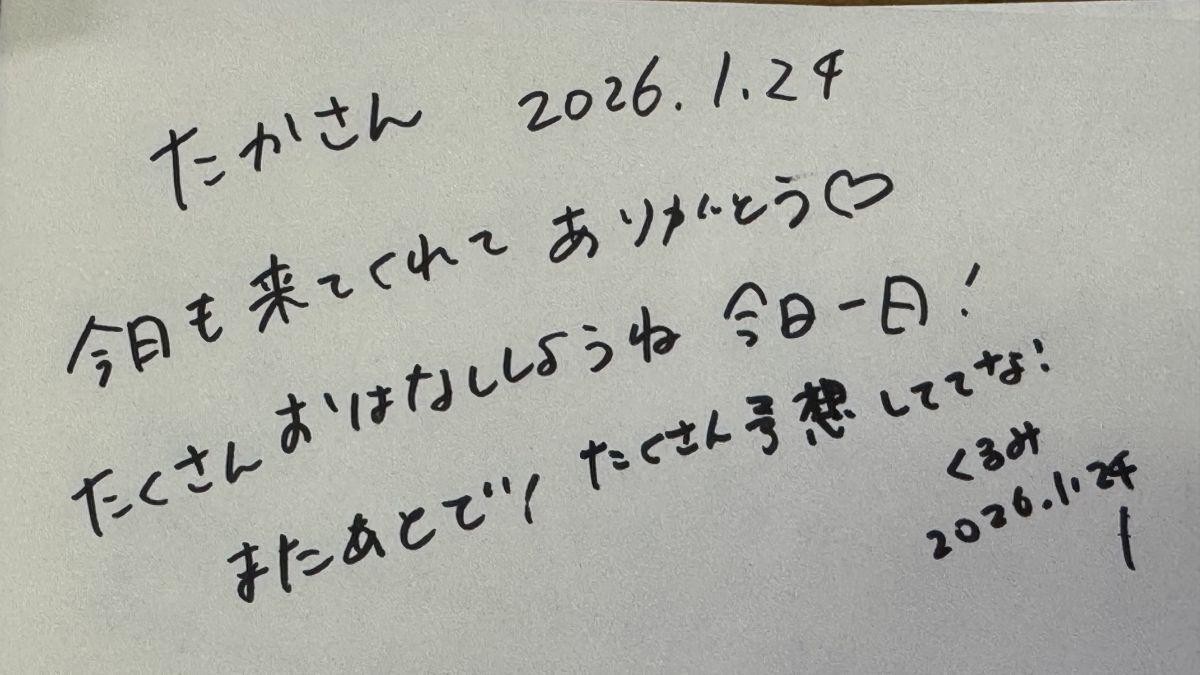 たかさん 2026.1.24
今日も来てくれて ありがとう♡
たくさんおはなししようね 今日一日!
またあとでっ! たくさん予想しててな!
くるみ
2026.1.24
1